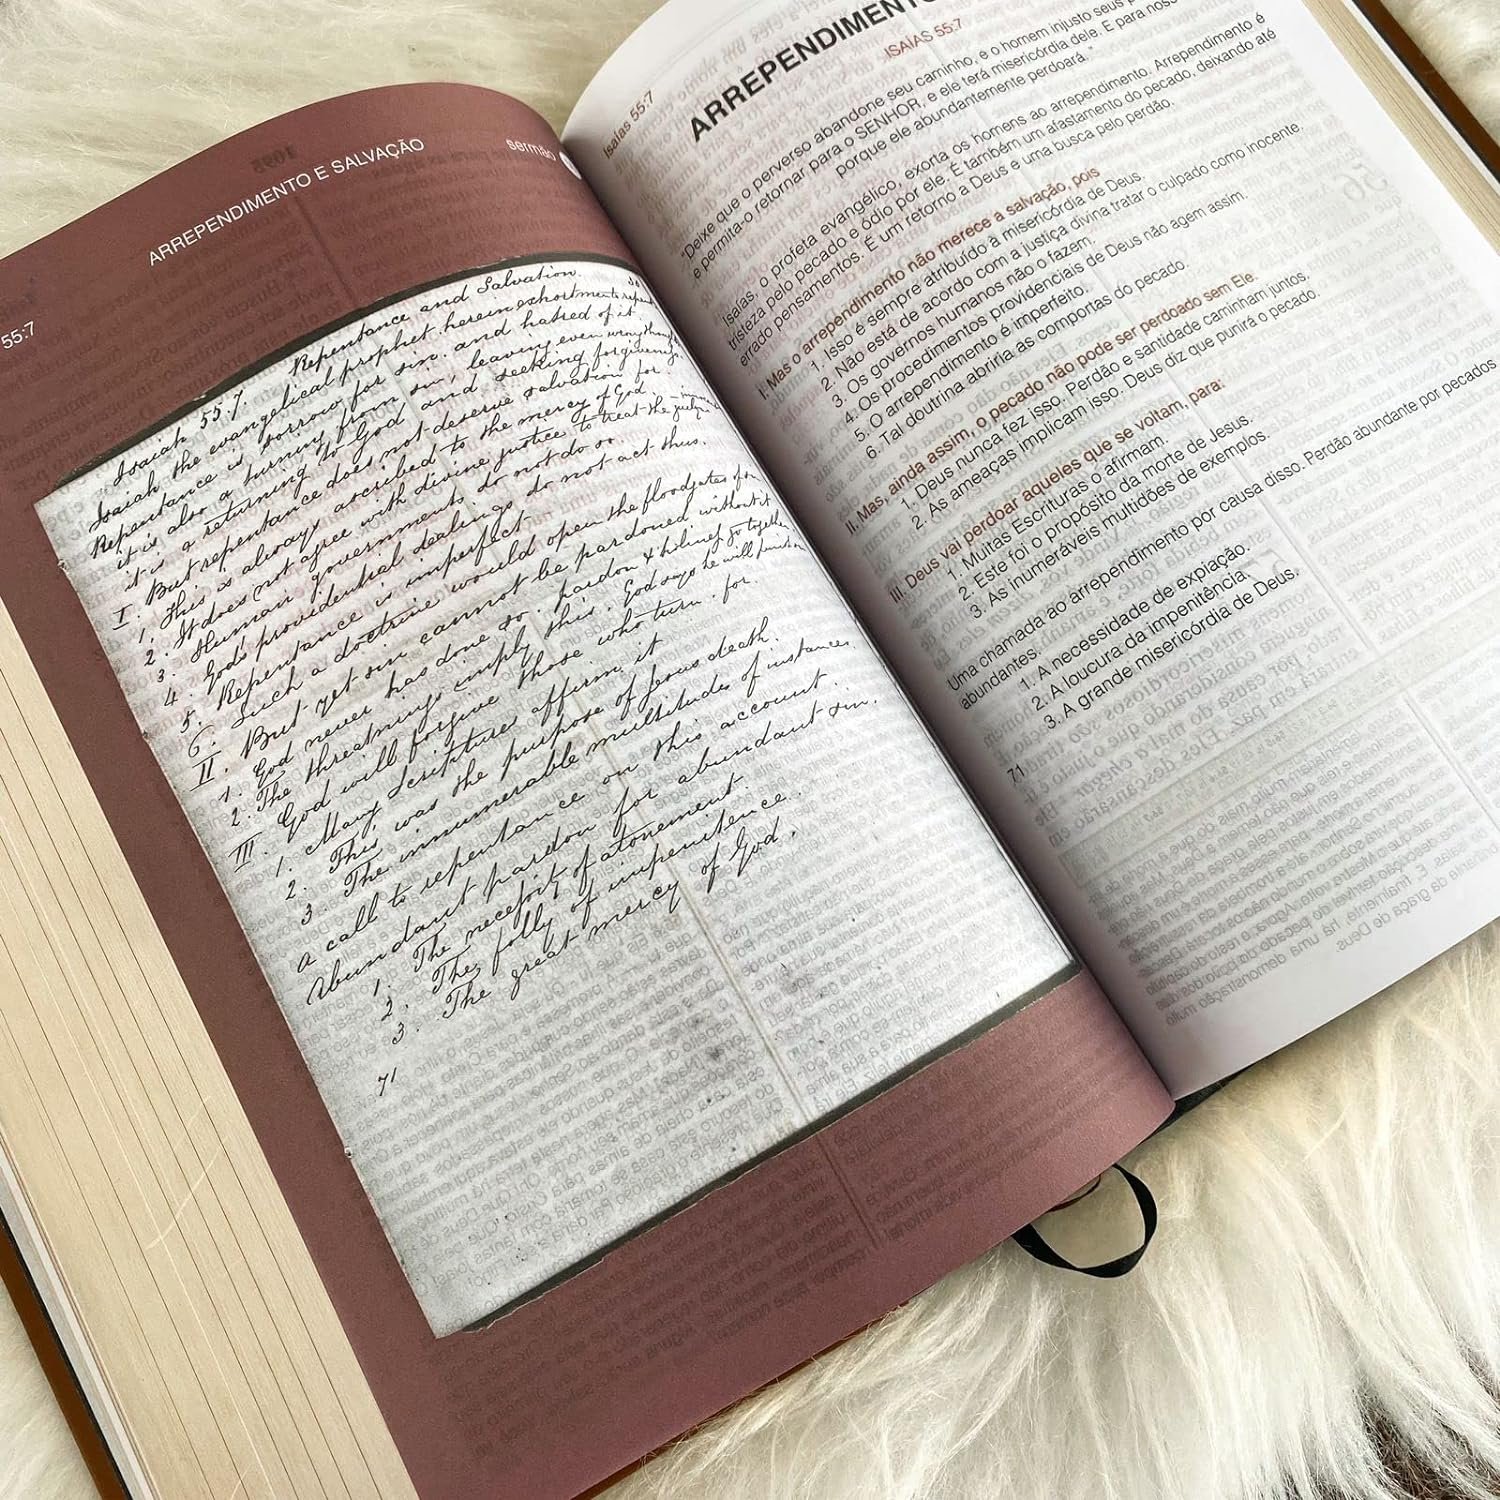 55:7
ARREPENDIMENTO E SALVAÇÃO
sermão
Isaiah 55:7. Repentance and Salvation.
Isaiah the evangelical prophet herein exhorts men to
Repentance is sorrow for sin. and hatred of it.
it is also a turning from sin, leaving even wrong
it is a returning to God and seeking forgiveness.
I. But repentance does not deserve salvation for.
1. This is always ascribed to the mercy of God.
2. It does not agree with divine justice to treat the guilty
3. Human governments do not do so.
4. God's providential dealings do not act thus.
5. Repentance is imperfect.
6. Such a doctrine would open the floodgates
II. But yet sin cannot be pardoned without it
1. God never has done so. pardon & holiness go together
2. The threatnings imply this. God says he will punish
III. God will forgive those who turn. for.
1. Many Scriptures affirm it
2. This was the purpose of Jesus death.
3. The innumerable multitudes of instances.
A call to repentance on this account.
Abundant pardon for abundant sin.
1. The necessity of atonement.
2. The folly of impenitence.
3. The great mercy of God.
71
Isaías 55:7
ARREPENDIMENTO
ISAÍAS 55:7
"Deixe que o perverso abandone seu caminho, e o homem injusto seus
e permita-o retornar para o SENHOR, e ele terá misericórdia dele. E para nosso
porque ele abundantemente perdoará."
Isaías, o profeta evangélico, exorta os homens ao arrependimento. Arrependimento é
tristeza pelo pecado e ódio por ele. É também um afastamento do pecado, deixando até
errado pensamentos. É um retorno a Deus e uma busca pelo perdão.
I. Mas o arrependimento não merece a salvação, pois
1. Isso é sempre atribuído à misericórdia de Deus.
2. Não está de acordo com a justiça divina tratar o culpado como inocente.
3. Os governos humanos não o fazem.
4. Os procedimentos providenciais de Deus não agem assim.
5. O arrependimento é imperfeito.
6. Tal doutrina abriria as comportas do pecado.
II. Mas, ainda assim, o pecado não pode ser perdoado sem Ele.
1. Deus nunca fez isso. Perdão e santidade caminham juntos.
2. As ameaças implicam isso. Deus diz que punirá o pecado.
III. Deus vai perdoar aqueles que se voltam, para:
1. Muitas Escrituras o afirmam.
2. Este foi o propósito da morte de Jesus.
3. As inumeráveis multidões de exemplos.
Uma chamada ao arrependimento por causa disso. Perdão abundante por pecados
abundantes.
1. A necessidade de expiação.
2. A loucura da impenitência.
3. A grande misericórdia de Deus.
71